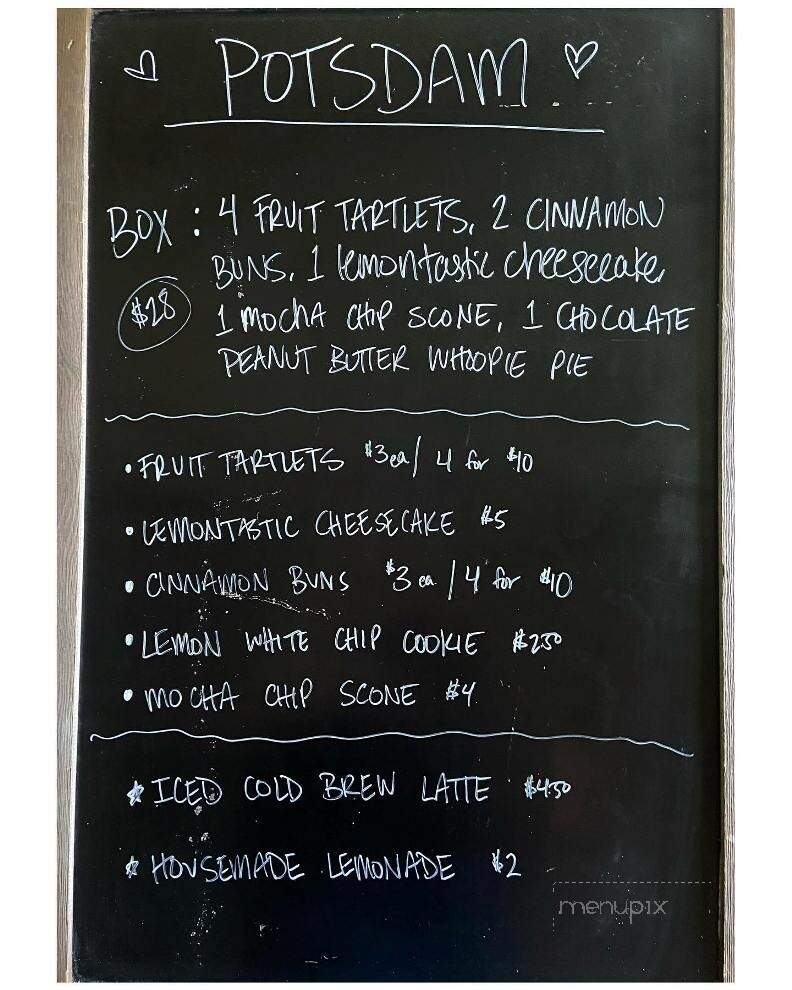 ♡ POTSDAM ♡
BOX : 4 FRUIT TARTLETS, 2 CINNAMON
BUNS, 1 lemontastic cheesecake,
$28
1 MOCHA CHIP SCONE, 1 CHOCOLATE
PEANUT BUTTER WHOOPIE PIE
• FRUIT TARTLETS $3ea/ 4 for $10
• LEMONTASTIC CHEESECAKE $5
• CINNAMON BUNS $3 ea / 4 for $10
• LEMON WHITE CHIP COOKIE $250
• MOCHA CHIP SCONE $4
☆ ICED COLD BREW LATTE $4.50
☆ HOUSEMADE LEMONADE $2
menupix